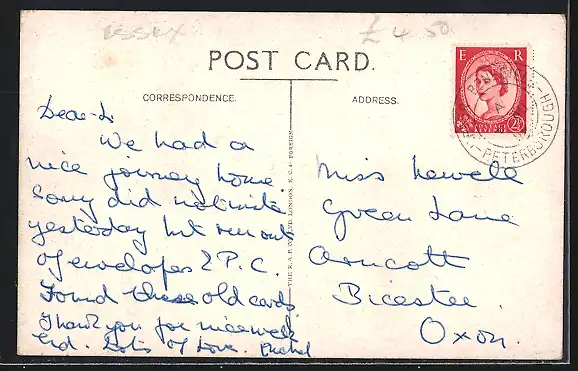 Essex
£4.50
POST CARD.
CORRESPONDENCE.
ADDRESS.
E R
POSTAGE
REVENUE
2½
PETERBOROUGH
Dear L
We had a
nice journey home.
Sorry did not write
yesterday but run out
of envelopes & P.C.
Found these old cards
Thank you for nice week
End. Lots of Love. Rachel
Miss Newell
Green Lane
Arncott
Bicester.
Oxon.